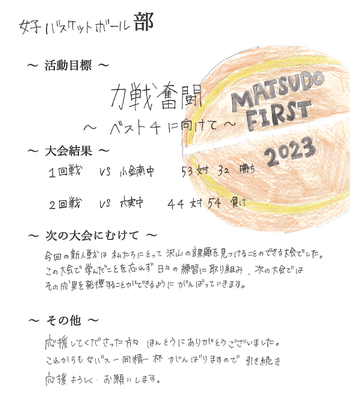 女子バスケットボール部
～ 活動目標 ～
力戦奮闘
～ ベスト4に向けて～
MATSUDO
FIRST
2023
～ 大会結果 ～
1回戦 VS 小金南中 53対32 勝ち
2回戦 VS 六実中 44対54 負け
～ 次の大会にむけて ～
今回の新人戦は私たちにとって沢山の課題を見つけることのできる大会でした。
この大会で学んだことを忘れず日々の練習に取り組み、次の大会では
その成果を発揮することができるようにがんばっていきます。
～ その他 ～
応援してくださった方々ほんとうにありがとうございました。
これからも女バス一同精一杯がんばりますので引き続き
応援よろしくお願いします。